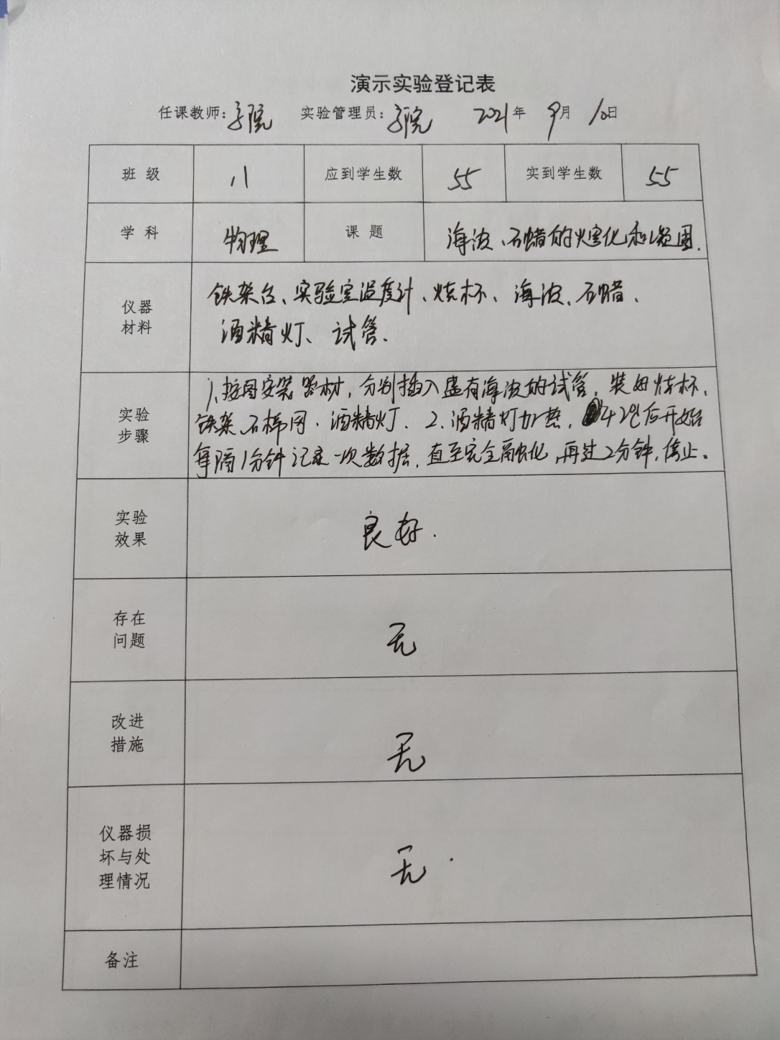 演示实验登记表
任课教师: 实验管理员: 2021年 9月 10日
班级 八 应到学生数 55 实到学生数 55
学科 物理 课题 海波、石蜡的熔化和凝固.
仪器
材料
铁架台、实验室温度计、烧杯、海波、石蜡、
酒精灯、试管.
实验
步骤
1、按图安装器材,分别插入盛有海波的试管,装 烧杯、
铁架、石棉网、酒精灯. 2.酒精灯加热, 42℃后开始
每隔1分钟记录一次数据,直至完全融化,再过2分钟,停止。
实验
效果
良好.
存在
问题
无
改进
措施
无
仪器损
坏与处
理情况
无.
备注